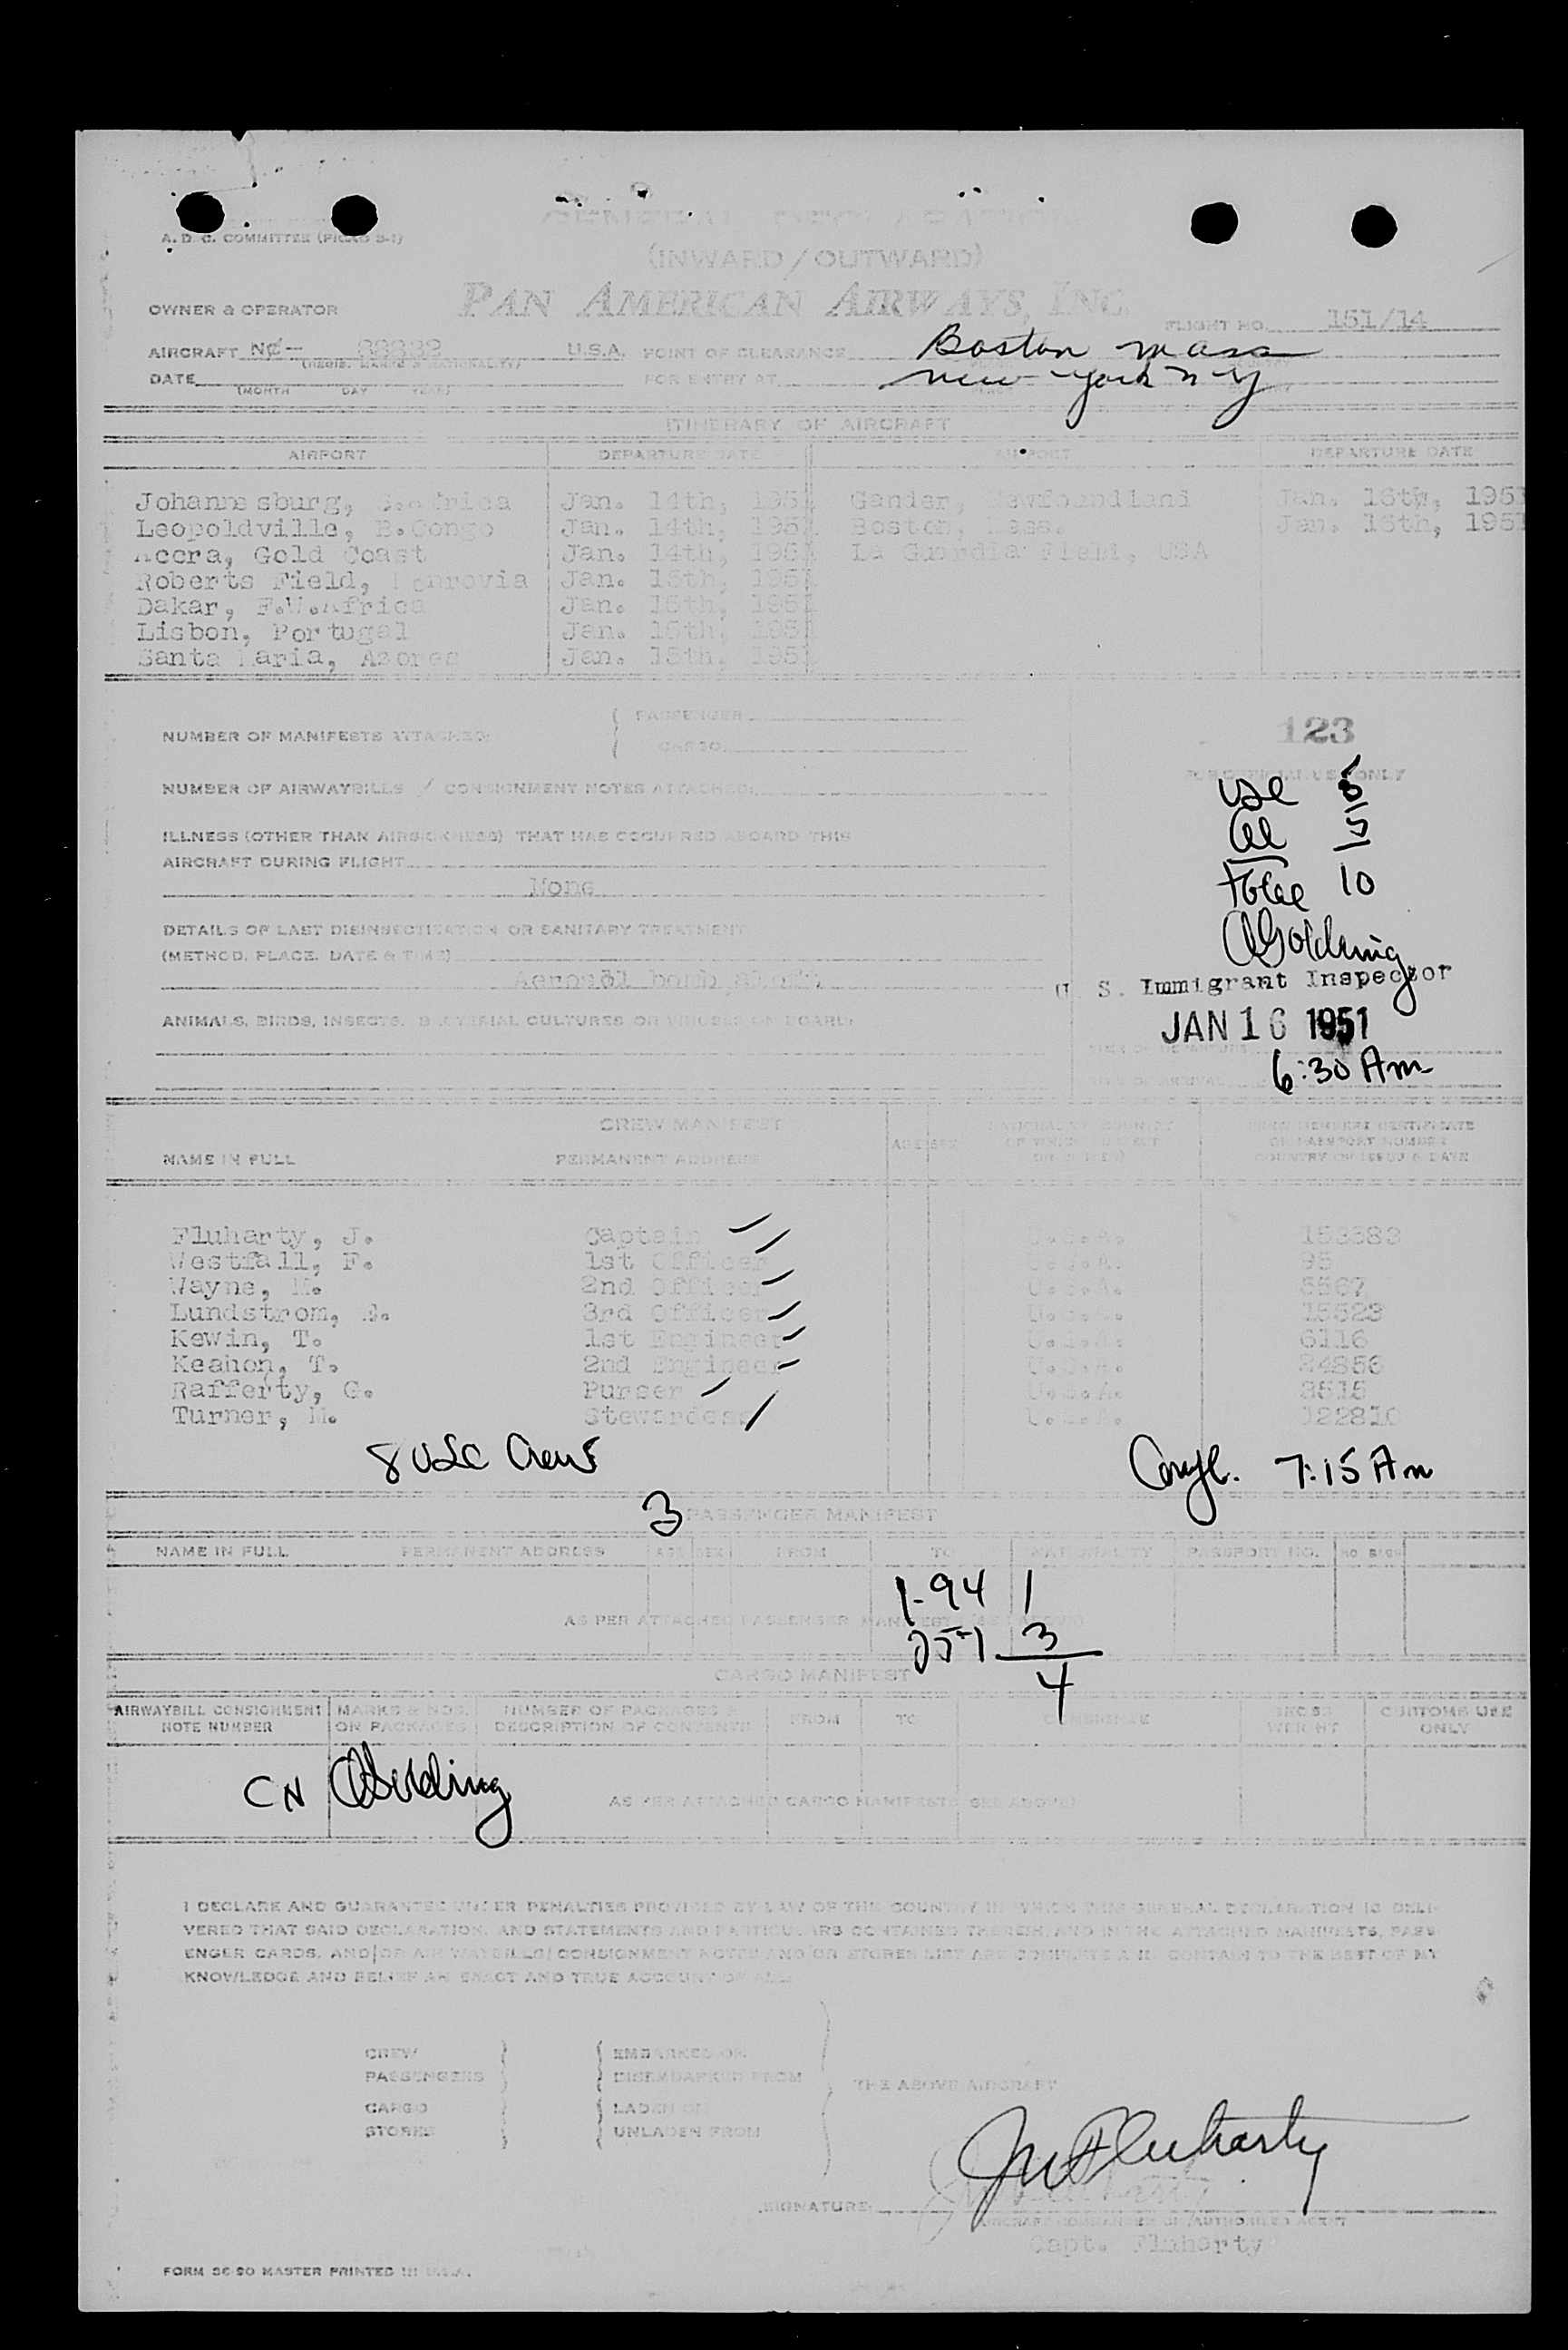 GENERAL DECLARATION
A. D. C. COMMITTEE
(INWARD / OUTWARD)
OWNER & OPERATOR PAN AMERICAN AIRWAYS, INC. FLIGHT NO. 151/14
AIRCRAFT NC- U.S.A. POINT OF CLEARANCE Boston Mass
DATE FOR ENTRY AT New York N Y
(MONTH DAY YEAR)
ITINERARY OF AIRCRAFT
AIRPORT DEPARTURE DATE AIRPORT DEPARTURE DATE
Johannesburg, S.Africa Jan. 14th, 1951 Gander, Newfoundland Jan. 16th, 1951
Leopoldville, B.Congo Jan. 14th, 1951 Boston, Mass. Jan. 16th, 1951
Accra, Gold Coast Jan. 14th, 1951 La Guardia Field, USA
Roberts Field, Monrovia Jan. 15th, 1951
Dakar, F.W.Africa Jan. 15th, 1951
Lisbon, Portugal Jan. 15th, 1951
Santa Maria, Azores Jan. 15th, 1951
PASSENGER
NUMBER OF MANIFESTS ATTACHED: 123
CARGO
FOR OFFICIAL USE ONLY
NUMBER OF AIRWAYBILLS / CONSIGNMENT NOTES ATTACHED:
USC 5
ILLNESS (OTHER THAN AIRSICKNESS) THAT HAS OCCURRED ABOARD THIS
AIRCRAFT DURING FLIGHT
al 5
None
Total 10
DETAILS OF LAST DISINSECTIZATION OR SANITARY TREATMENT
(METHOD, PLACE, DATE & TIME)
AGolding
Aerosol bomb
U. S. Immigrant Inspector
ANIMALS, BIRDS, INSECTS, BACTERIAL CULTURES OR VIRUSES ON BOARD:
JAN 16 1951
6:30 Am
CREW MANIFEST
NAME IN FULL PERMANENT ADDRESS AGE SEX
Fluharty, J. Captain U.S.A. 153383
Westfall, F. 1st Officer U.S.A. 95
Wayne, M. 2nd Officer U.S.A. 5567
Lundstrom, 3rd Officer U.S.A. 15523
Kewin, T. 1st Engineer U.S.A. 6116
Keahon, T. 2nd Engineer U.S.A. 24856
Rafferty, G. Purser U.S.A. 3515
Turner, M. Stewardess U.S.A.
8 USC Crew 7:15 Am
3 PASSENGER MANIFEST
NAME IN FULL PERMANENT ADDRESS AGE SEX FROM TO NATIONALITY PASSPORT NO.
1-94 1
AS PER ATTACHED PASSENGER MANIFEST (SEE ABOVE)
257-1 3
4
CARGO MANIFEST
AIRWAYBILL CONSIGNMENT NOTE NUMBER MARKS & NOS. ON PACKAGES NUMBER OF PACKAGES & DESCRIPTION OF CONTENTS FROM TO CONSIGNEE GROSS WEIGHT CUSTOMS USE ONLY
CN AGolding
AS PER ATTACHED CARGO MANIFEST (SEE ABOVE)
I DECLARE AND GUARANTEE UNDER PENALTIES PROVIDED BY LAW OF THE COUNTRY IN WHICH THIS GENERAL DECLARATION IS DELI-
VERED THAT SAID DECLARATION, AND STATEMENTS AND PARTICULARS CONTAINED THEREIN, AND IN THE ATTACHED MANIFESTS, PASS-
ENGER CARDS, AND/OR AIR WAYBILLS/CONSIGNMENT NOTES AND/OR STORES LIST ARE COMPLETE AND CONTAIN TO THE BEST OF MY
KNOWLEDGE AND BELIEF AN EXACT AND TRUE ACCOUNT OF ALL:
CREW EMBARKED ON
PASSENGERS DISEMBARKED FROM
THE ABOVE AIRCRAFT
CARGO LADEN ON
STORES UNLADEN FROM
JW Fluharty
SIGNATURE:
AIRCRAFT COMMANDER OR AUTHORIZED AGENT
Capt. Fluharty
FORM 36-90 MASTER PRINTED IN U.S.A.